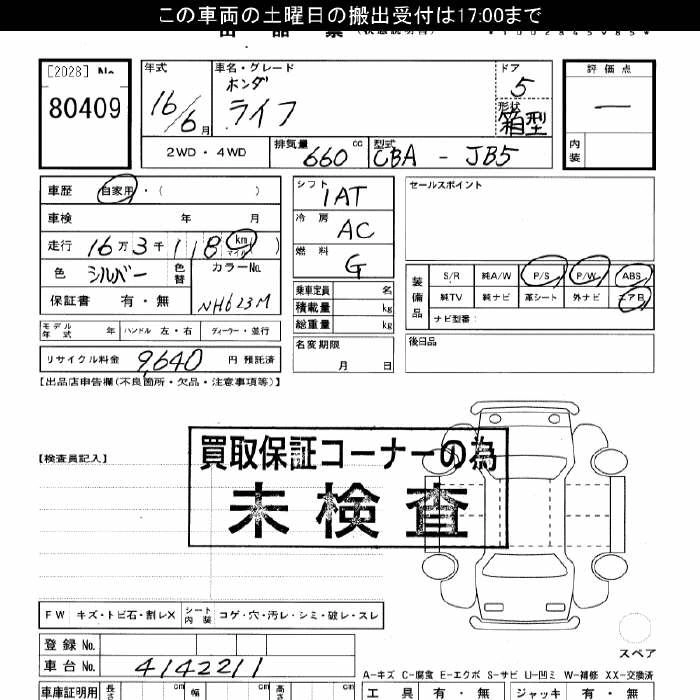 この車両の土曜日の搬出受付は17:00まで
[2028] No.
80409
年式
16/6月
車名・グレード
ホンダ
ライフ
ドア
5
形状
箱型
評価点
—
内装
2WD・4WD
排気量
660cc
型式
CBA - JB5
車歴 自家用・( )
車検 年 月
走行 16万3千118 km マイル )
色 シルバー 色替 カラーNo. NH623M
保証書 有・無
モデル年式 年 ハンドル 左・右 ディーラー・並行
リサイクル料金 9,640 円 預託済
シフト IAT
冷房 AC
燃料 G
乗車定員 名
積載量 kg
総重量 kg
名変期限
月 日
セールスポイント
装備品
S/R 純A/W P/S P/W ABS
純TV 純ナビ 革シート 外ナビ エアB
ナビ型番:
後日品
【出品店申告欄(不良箇所・欠品・注意事項等)】
【検査員記入】
買取保証コーナーの為
未検査
FW キズ・トビ石・割レX シート内装 コゲ・穴・汚レ・シミ・破レ・スレ
スペア
登録No.
車台No. 4142211
A-キズ C-腐食 E-エクボ S-サビ U-凹ミ W-補修 XX-交換済
車庫証明用 長さ cm 幅 cm 高さ cm
工具 有・無 ジャッキ 有・無